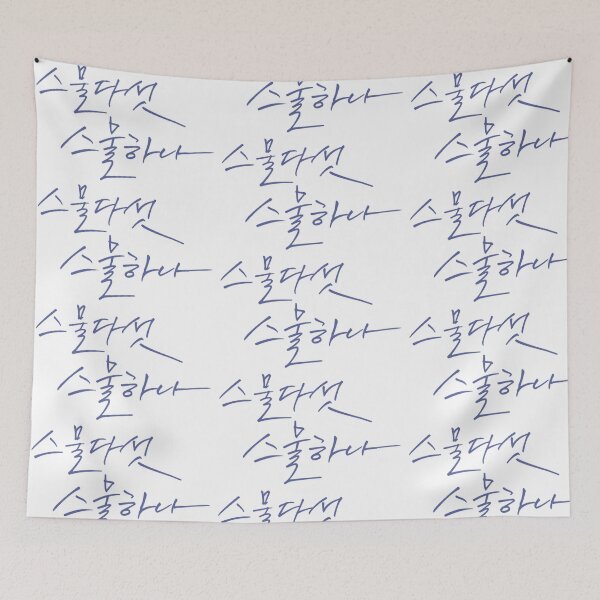 스물다섯
스물하나
스물다섯
스물하나
스물다섯
스물하나
스물다섯
스물하나
스물하나
스물다섯
스물하나
스물다섯
스물하나
스물다섯
스물하나
스물다섯
스물다섯
스물하나
스물다섯
스물하나
스물다섯
스물하나
스물다섯
스물하나